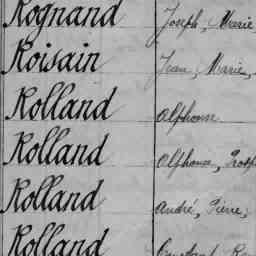 Rognand Joseph, Marie
Roisain Jean, Marie,
Rolland Alphonse
Rolland Alphonse, Prosp
Rolland André, Pierre,
Rolland Constant